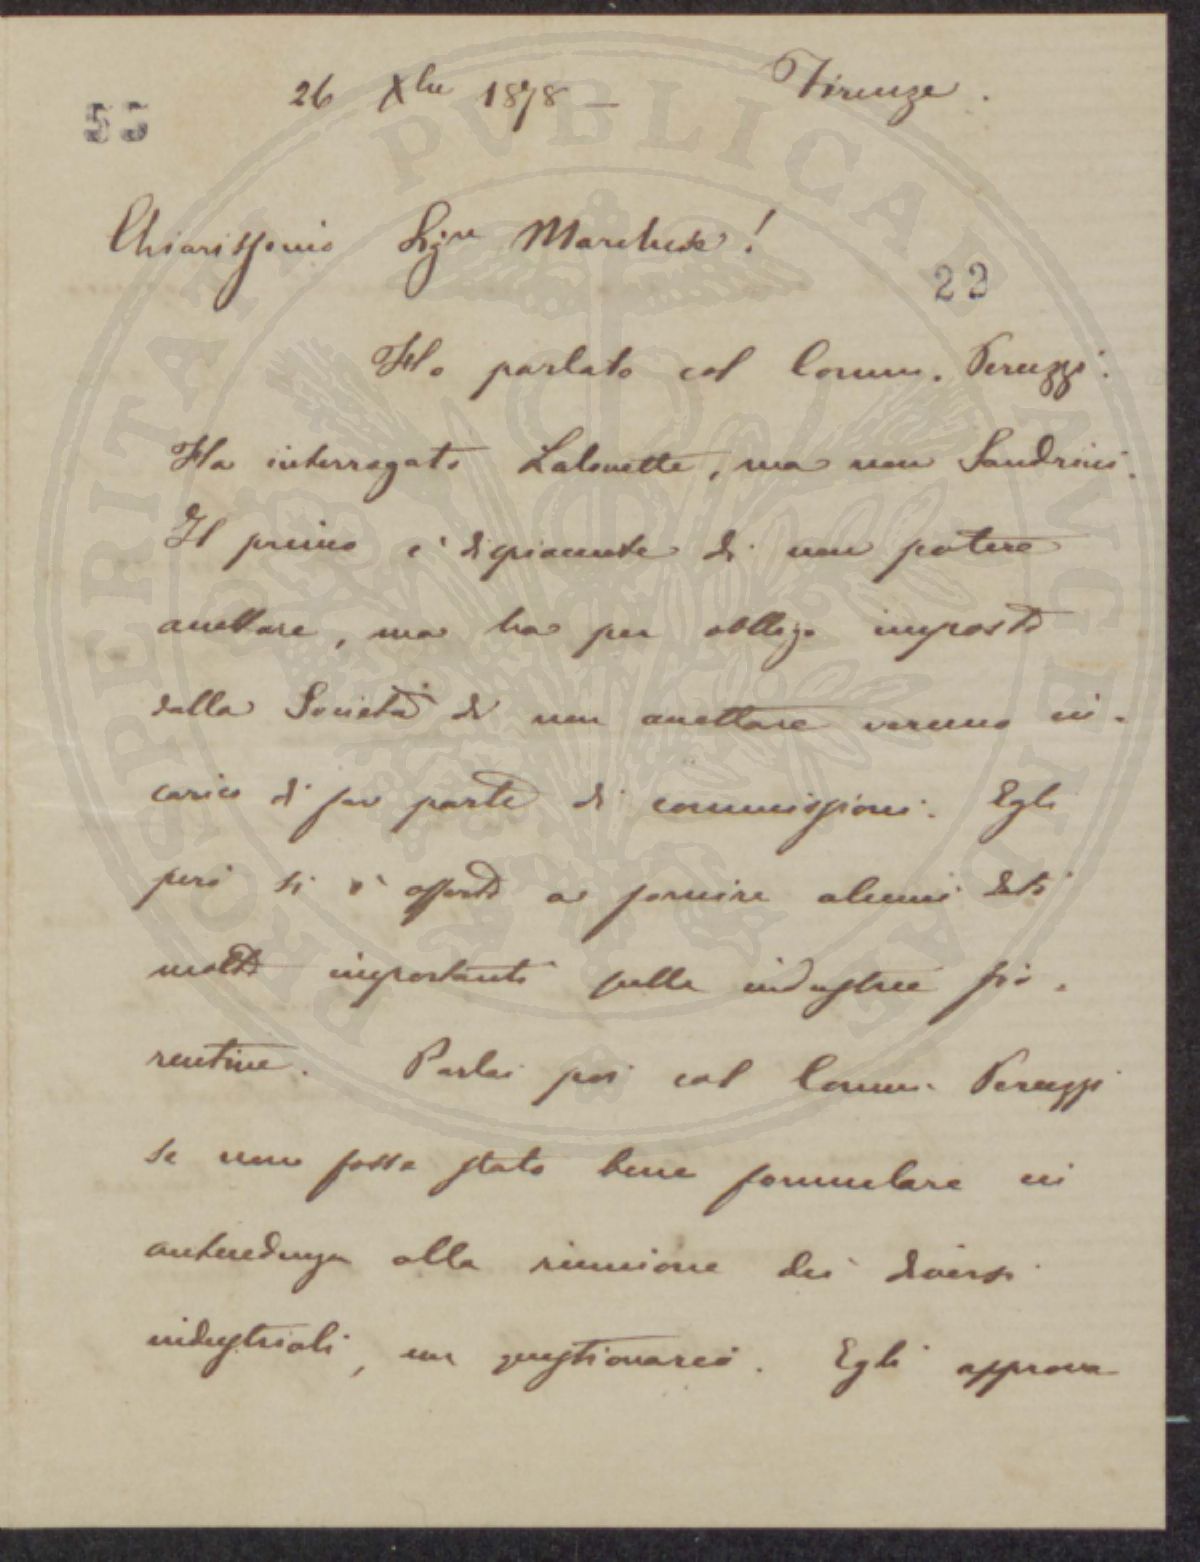 26 Xbre 1878 — Firenze.
55
Chiarissimo Sigre Marchese!
22
Ho parlato col Comm. Peruzzi.
Ha interrogato Lalouette, ma non Sandrini.
Il primo è dispiacente di non potere
accettare, ma ha per obbligo imposto
dalla Società di non accettare veruno in-
carico di far parte di commissioni. Egli
però si è offerto a fornire alcuni dati
molto importanti sulle industrie fio-
rentine. Parlai poi col Comm. Peruzzi
se non fosse stato bene formulare in
antecedenza alla riunione dei diversi
industriali, un questionario. Egli approva
PROSPERITATI PVBLICAE AVGENDAE